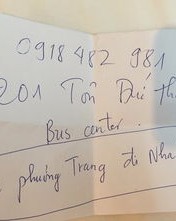 0918 482 981
201 Tôn Đức Th
Bus center.
phương Trang đi Nha